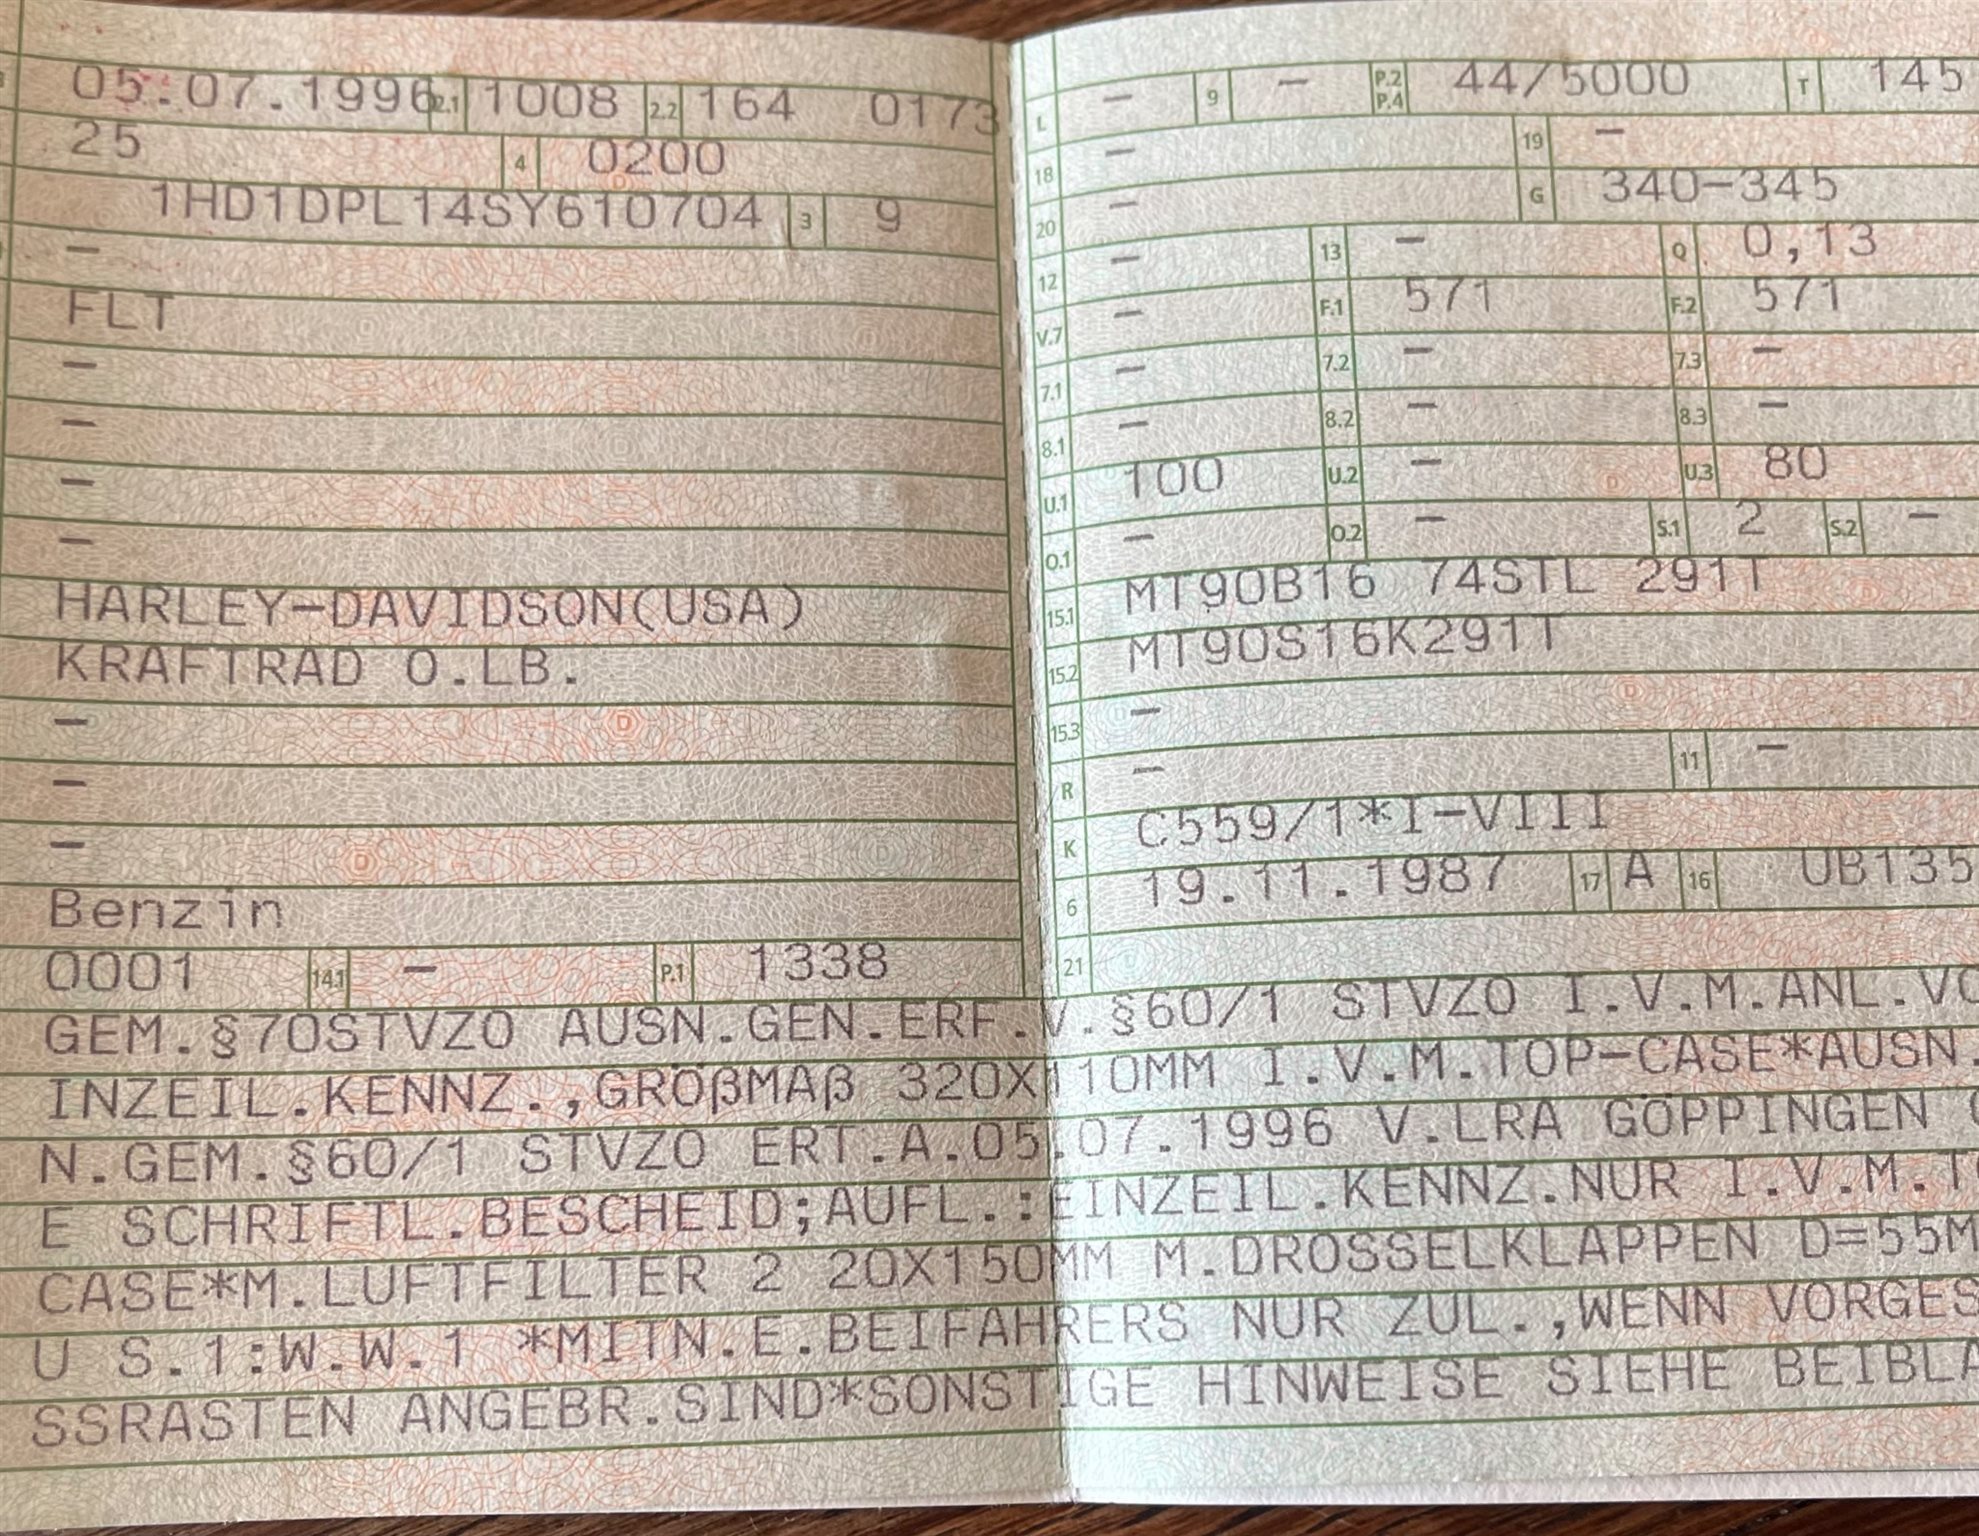 05.07.1996 2.1 1008 2.2 164 0173
25 4 0200
1HD1DPL14SY610704 3 9
–
FLT
–
–
–
–
HARLEY-DAVIDSON(USA)
KRAFTRAD O.LB.
–
–
–
Benzin
0001 14.1 – P.1 1338
L – 9 – P.2 P.4 44/5000 T 145
18 – 19 –
20 – G 340-345
12 – 13 – Q 0,13
V.7 – F.1 571 F.2 571
7.1 – 7.2 – 7.3 –
8.1 – 8.2 – 8.3 –
U.1 100 U.2 – U.3 80
O.1 – O.2 – S.1 2 S.2 –
15.1 MT90B16 74STL 291T
15.2 MT90S16K291T
15.3 –
R – 11 –
K C559/1*I-VIII
6 19.11.1987 17 A 16 UB135
21
GEM.§70STVZO AUSN.GEN.ERF.V.§60/1 STVZO I.V.M.ANL.VO
INZEIL.KENNZ.,GRÖßMAß 320X110MM I.V.M.TOP-CASE*AUSN.
N.GEM.§60/1 STVZO ERT.A.05.07.1996 V.LRA GÖPPINGEN
E SCHRIFTL.BESCHEID;AUFL.:EINZEIL.KENNZ.NUR I.V.M.T
CASE*M.LUFTFILTER 2 20X150MM M.DROSSELKLAPPEN D=55M
U S.1:W.W.1 *MITN.E.BEIFAHRERS NUR ZUL.,WENN VORGES
SSRASTEN ANGEBR.SIND*SONSTIGE HINWEISE SIEHE BEIBLA